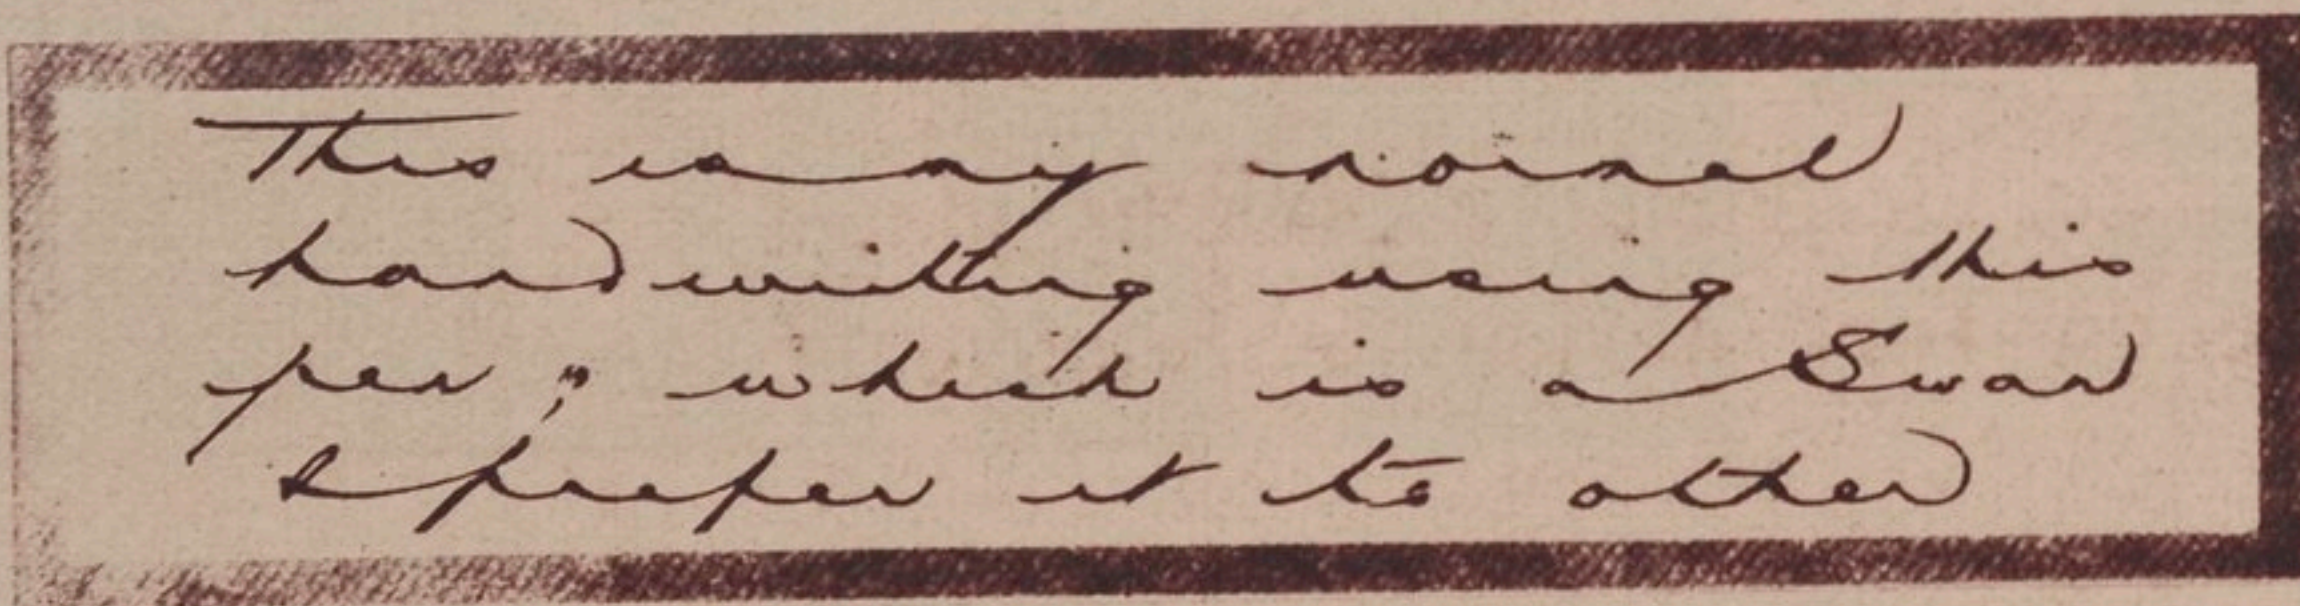 This is my normal
handwriting using this
pen, which is a Swan
I prefer it to other